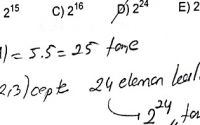 2¹⁵ C) 2¹⁶ D) 2²⁴ E) 2
) = 5.5 = 25 tane
2,3) cepte 24 eleman
2²⁴